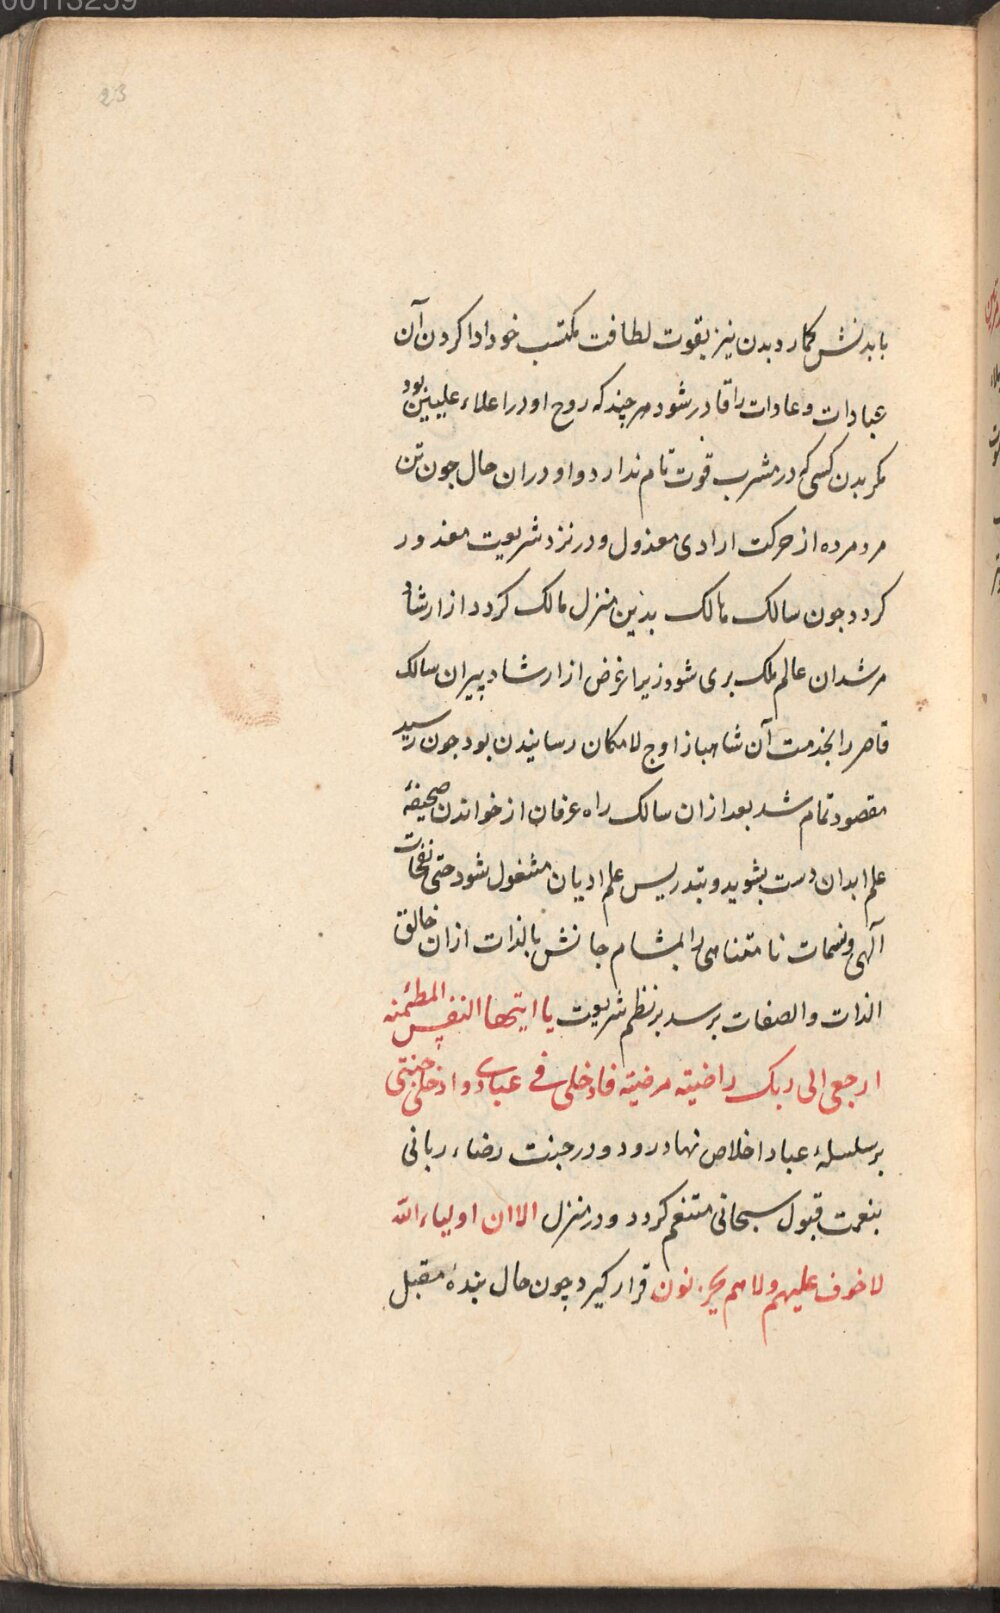 00113239
23
بابدنش کمارد بدن نیز بقوت لطافت مکتسب خود ادا کردن آن
عبادات و عادات را قادر شود هرچند که روح او در اعلاء علیین بود
مکر بدن کسی که در مشرب قوت تام ندارد و او در ان حال چون تن
مرد مرده از حرکت ارادی معذول و در نزد شریعت معذور
کردد چون سالک مالک بدین منزل مالک کردد از ارشاد
مرشدان عالم ملک بری شود زیرا غرض از ارشاد پیران سالک
قاصر را بخدمت آن شاهباز اوج لامکان رسانیدن بود چون رسید
مقصود تمام شد بعد از ان سالک راه عرفان از خواندن صحیفهٔ
علم ابدان دست بشوید و بتدریس علم ادیان مشغول شود حتی نفحات
آلهی و نسمات نامتناهی را بمشام جانش بالذات از ان خالق
الذات والصفات برسد بر نظم شریعت یا ایتها النفس المطمئنه
ارجعی الی ربک راضیته مرضیته فادخلی فی عبادی وادخلی جنتی
بر سلسلهٔ عباد اخلاص نهاد رود و در جنت رضاء ربانی
بنعمت قبول سبحانی متنعم کردد و در منزل الا ان اولیاء الله
لا خوف علیهم ولا هم یحزنون قرار کیرد چون حال بندهٔ مقبل